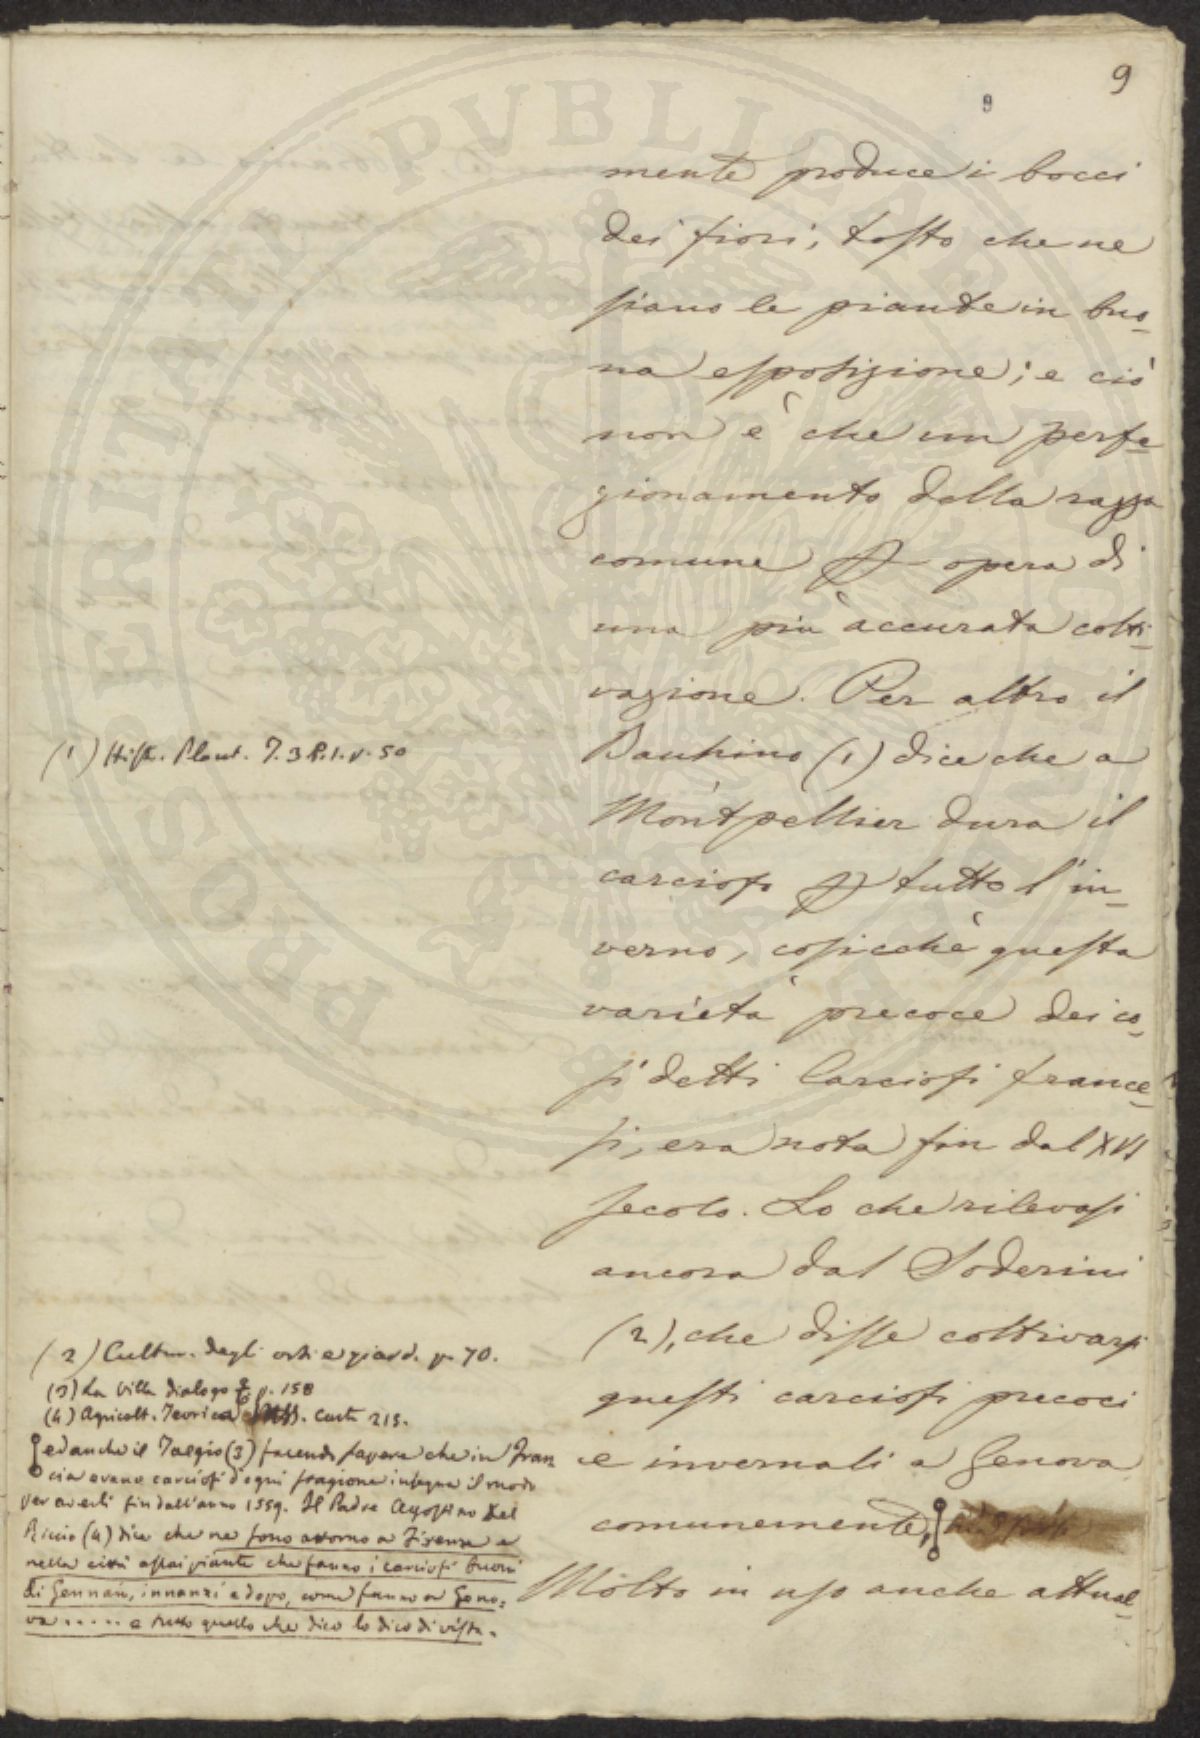 9
9
mente produce i bocci
dei fiori, tosto che ne
siano le piante in buo-
na esposizione; e ciò
non è che un perfe-
zionamento della razza
comune p opera di
una più accurata colti-
vazione. Per altro il
Bauhino (1) dice che a
Montpellier dura il
carciofo p tutto l'in-
verno, cosicchè questa
varietà precoce dei co-
sì detti Carciofi france-
si, era nota fin dal XVI
secolo. Lo che rilevasi
ancora dal Soderini
(2), che disse coltivarsi
questi carciofi precoci
e invernali a Genova
comunemente,
Molto in uso anche attual-
(1) Hist. Plant. T. 3 P. 1. p. 50
(2) Cultur. degli orti e giard. p. 70.
(3) La Villa dialogo p. 158
(4) Agricolt. Teorica MSS. carte 213.
ed anche il Taegio (3) facendo sapere che in Fran
cia erano carciofi d'ogni stagione insegna il modo
per averli fin dall'anno 1559. Il Padre Agostino del
Riccio (4) dice che ne sono attorno a Firenze e
nella città assai piante che fanno i carciofi buoni
di Gennaio, innanzi e dopo, come fanno a Geno-
va ..... e tutto quello che dico lo dico di vista.
PROSPERITATI PVBLICAE